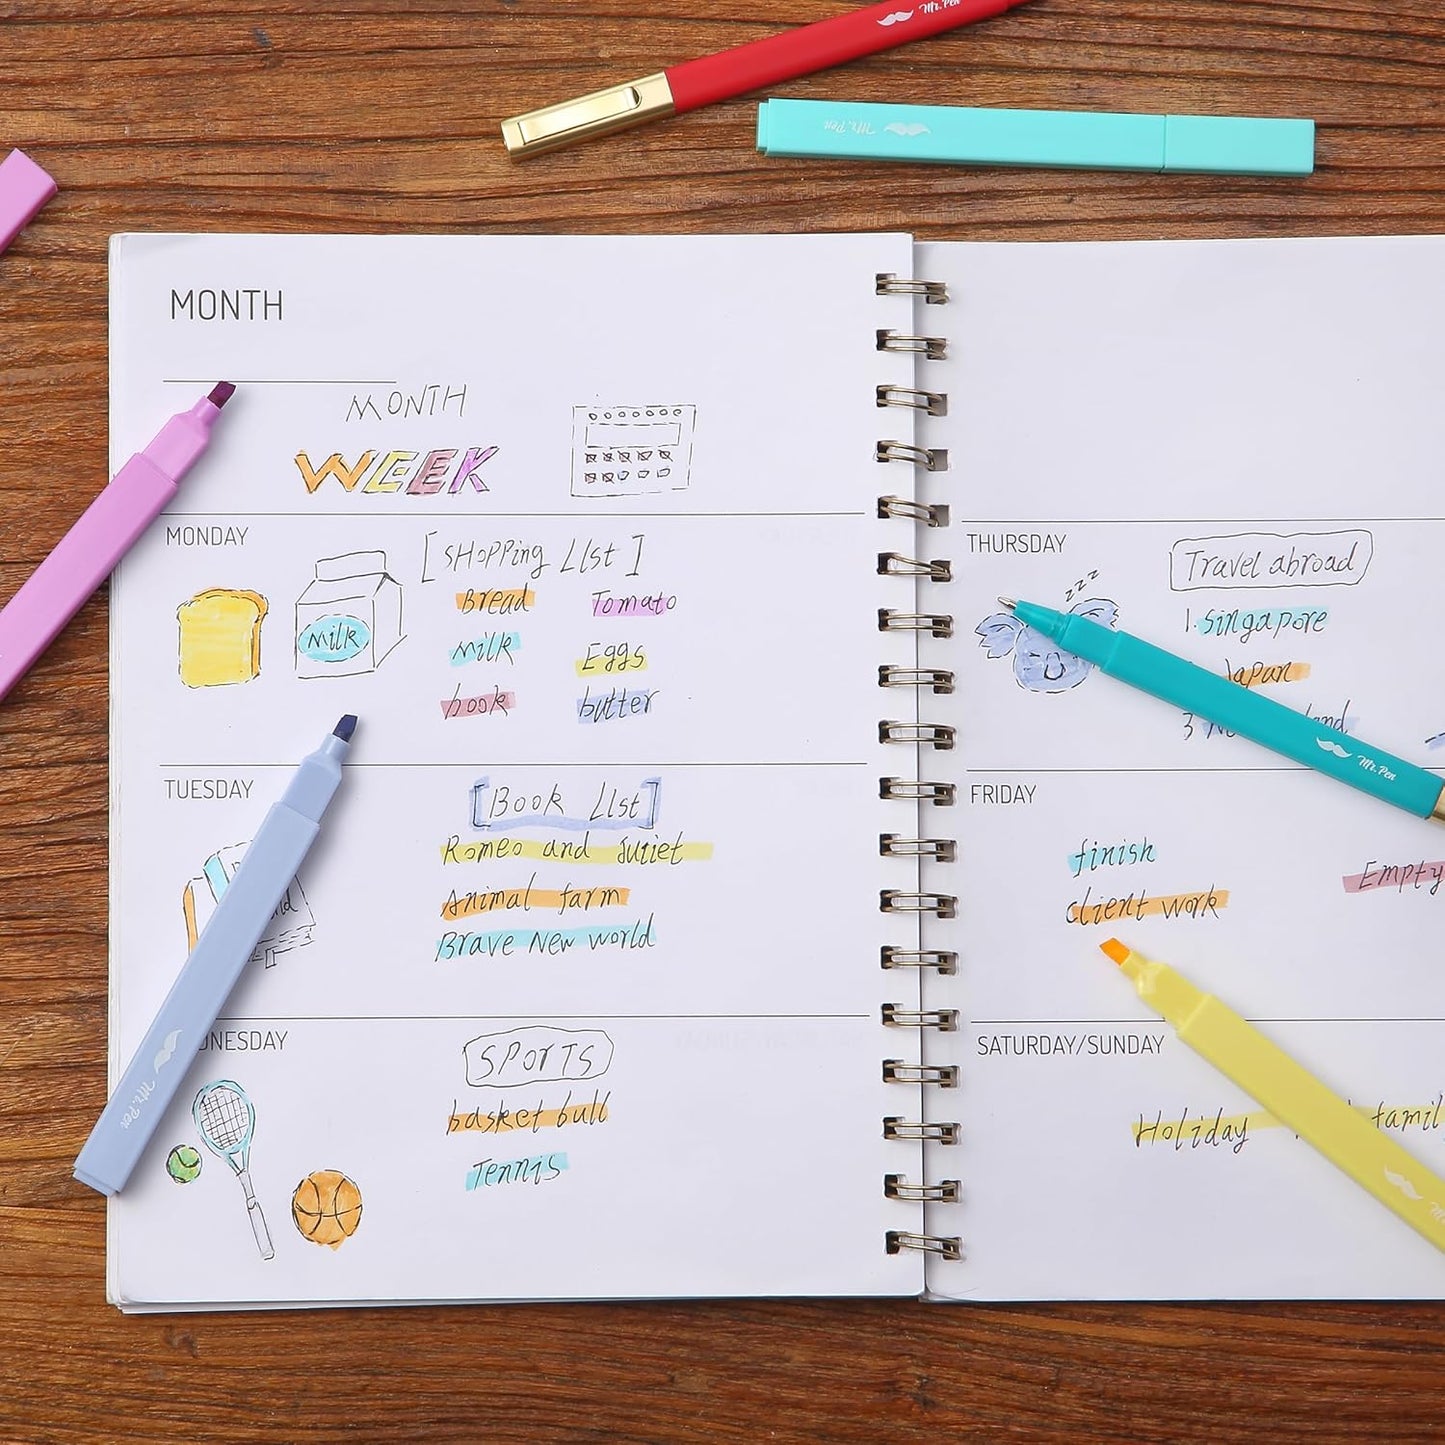 Mr. Pen
Mr. Pen
MONTH
MONTH
WEEK
MONDAY
[SHoPPing LIst]
Bread Tomato
milk
milk Eggs
book butter
TUESDAY
[Book LIst]
Romeo and Juliet
Animal farm
Brave New world
NESDAY
SPorTS
basket ball
Tennis
Mr. Pen
THURSDAY
zzz
Travel abroad
1. singapore
Japan
3
Mr. Pen
FRIDAY
finish
client work
Empty
SATURDAY/SUNDAY
Holiday famil